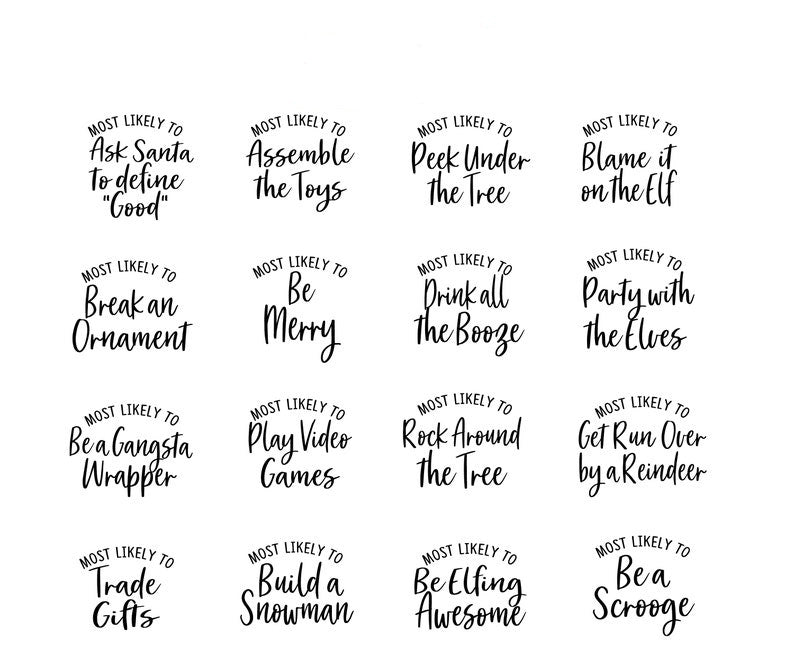 MOST LIKELY TO
Ask Santa
to define
"Good"
MOST LIKELY TO
Assemble
the Toys
MOST LIKELY TO
Peek Under
the Tree
MOST LIKELY TO
Blame it
on the Elf
MOST LIKELY TO
Break an
Ornament
MOST LIKELY TO
Be
Merry
MOST LIKELY TO
Drink all
the Booze
MOST LIKELY TO
Party with
the Elves
MOST LIKELY TO
Be a Gangsta
Wrapper
MOST LIKELY TO
Play Video
Games
MOST LIKELY TO
Rock Around
the Tree
MOST LIKELY TO
Get Run Over
by a Reindeer
MOST LIKELY TO
Trade
Gifts
MOST LIKELY TO
Build a
Snowman
MOST LIKELY TO
Be Elfing
Awesome
MOST LIKELY TO
Be a
Scrooge